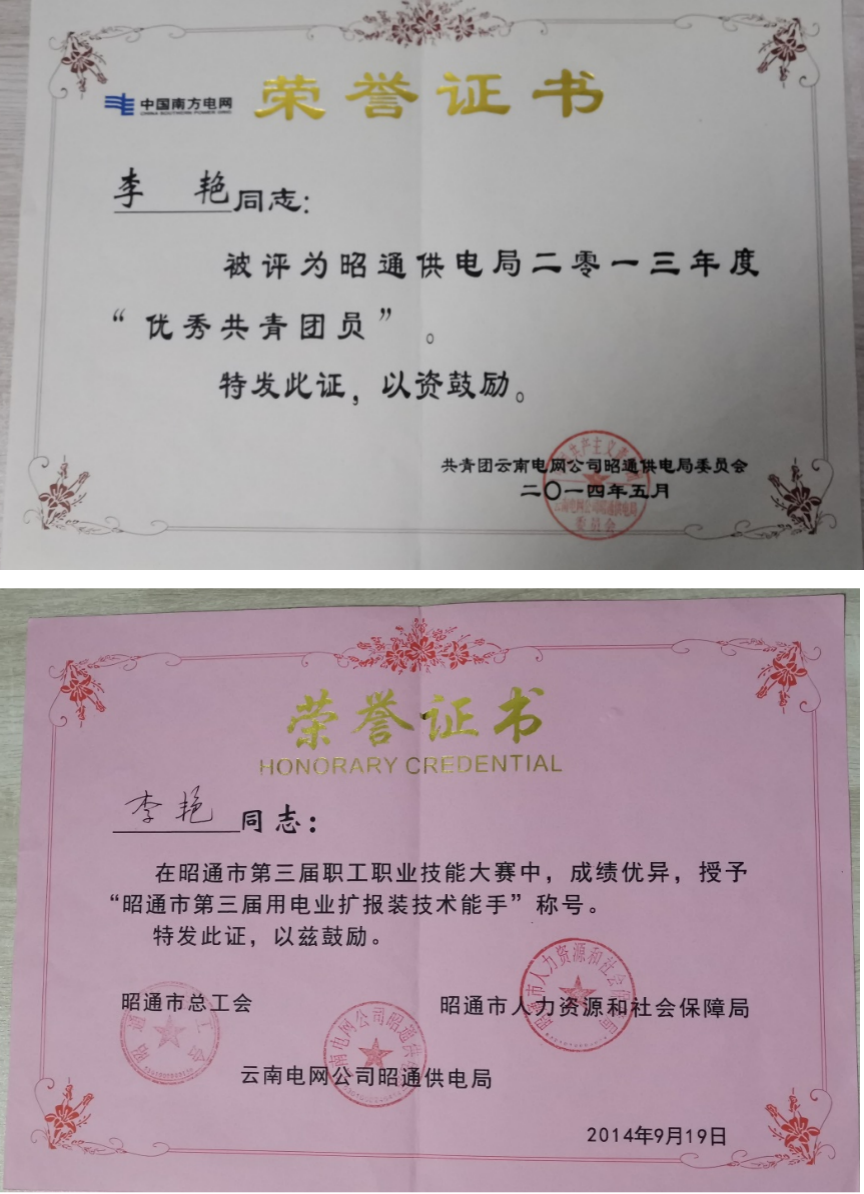 中国南方电网
CHINA SOUTHERN POWER GRID
荣誉证书
李 艳同志：
被评为昭通供电局二零一三年度
“优秀共青团员”。
特发此证，以资鼓励。
共青团云南电网公司昭通供电局委员会
二〇一四年五月
荣誉证书
HONORARY CREDENTIAL
李艳同志：
在昭通市第三届职工职业技能大赛中，成绩优异，授予
“昭通市第三届用电业扩报装技术能手”称号。
特发此证，以兹鼓励。
昭通市总工会
昭通市人力资源和社会保障局
云南电网公司昭通供电局
2014年9月19日